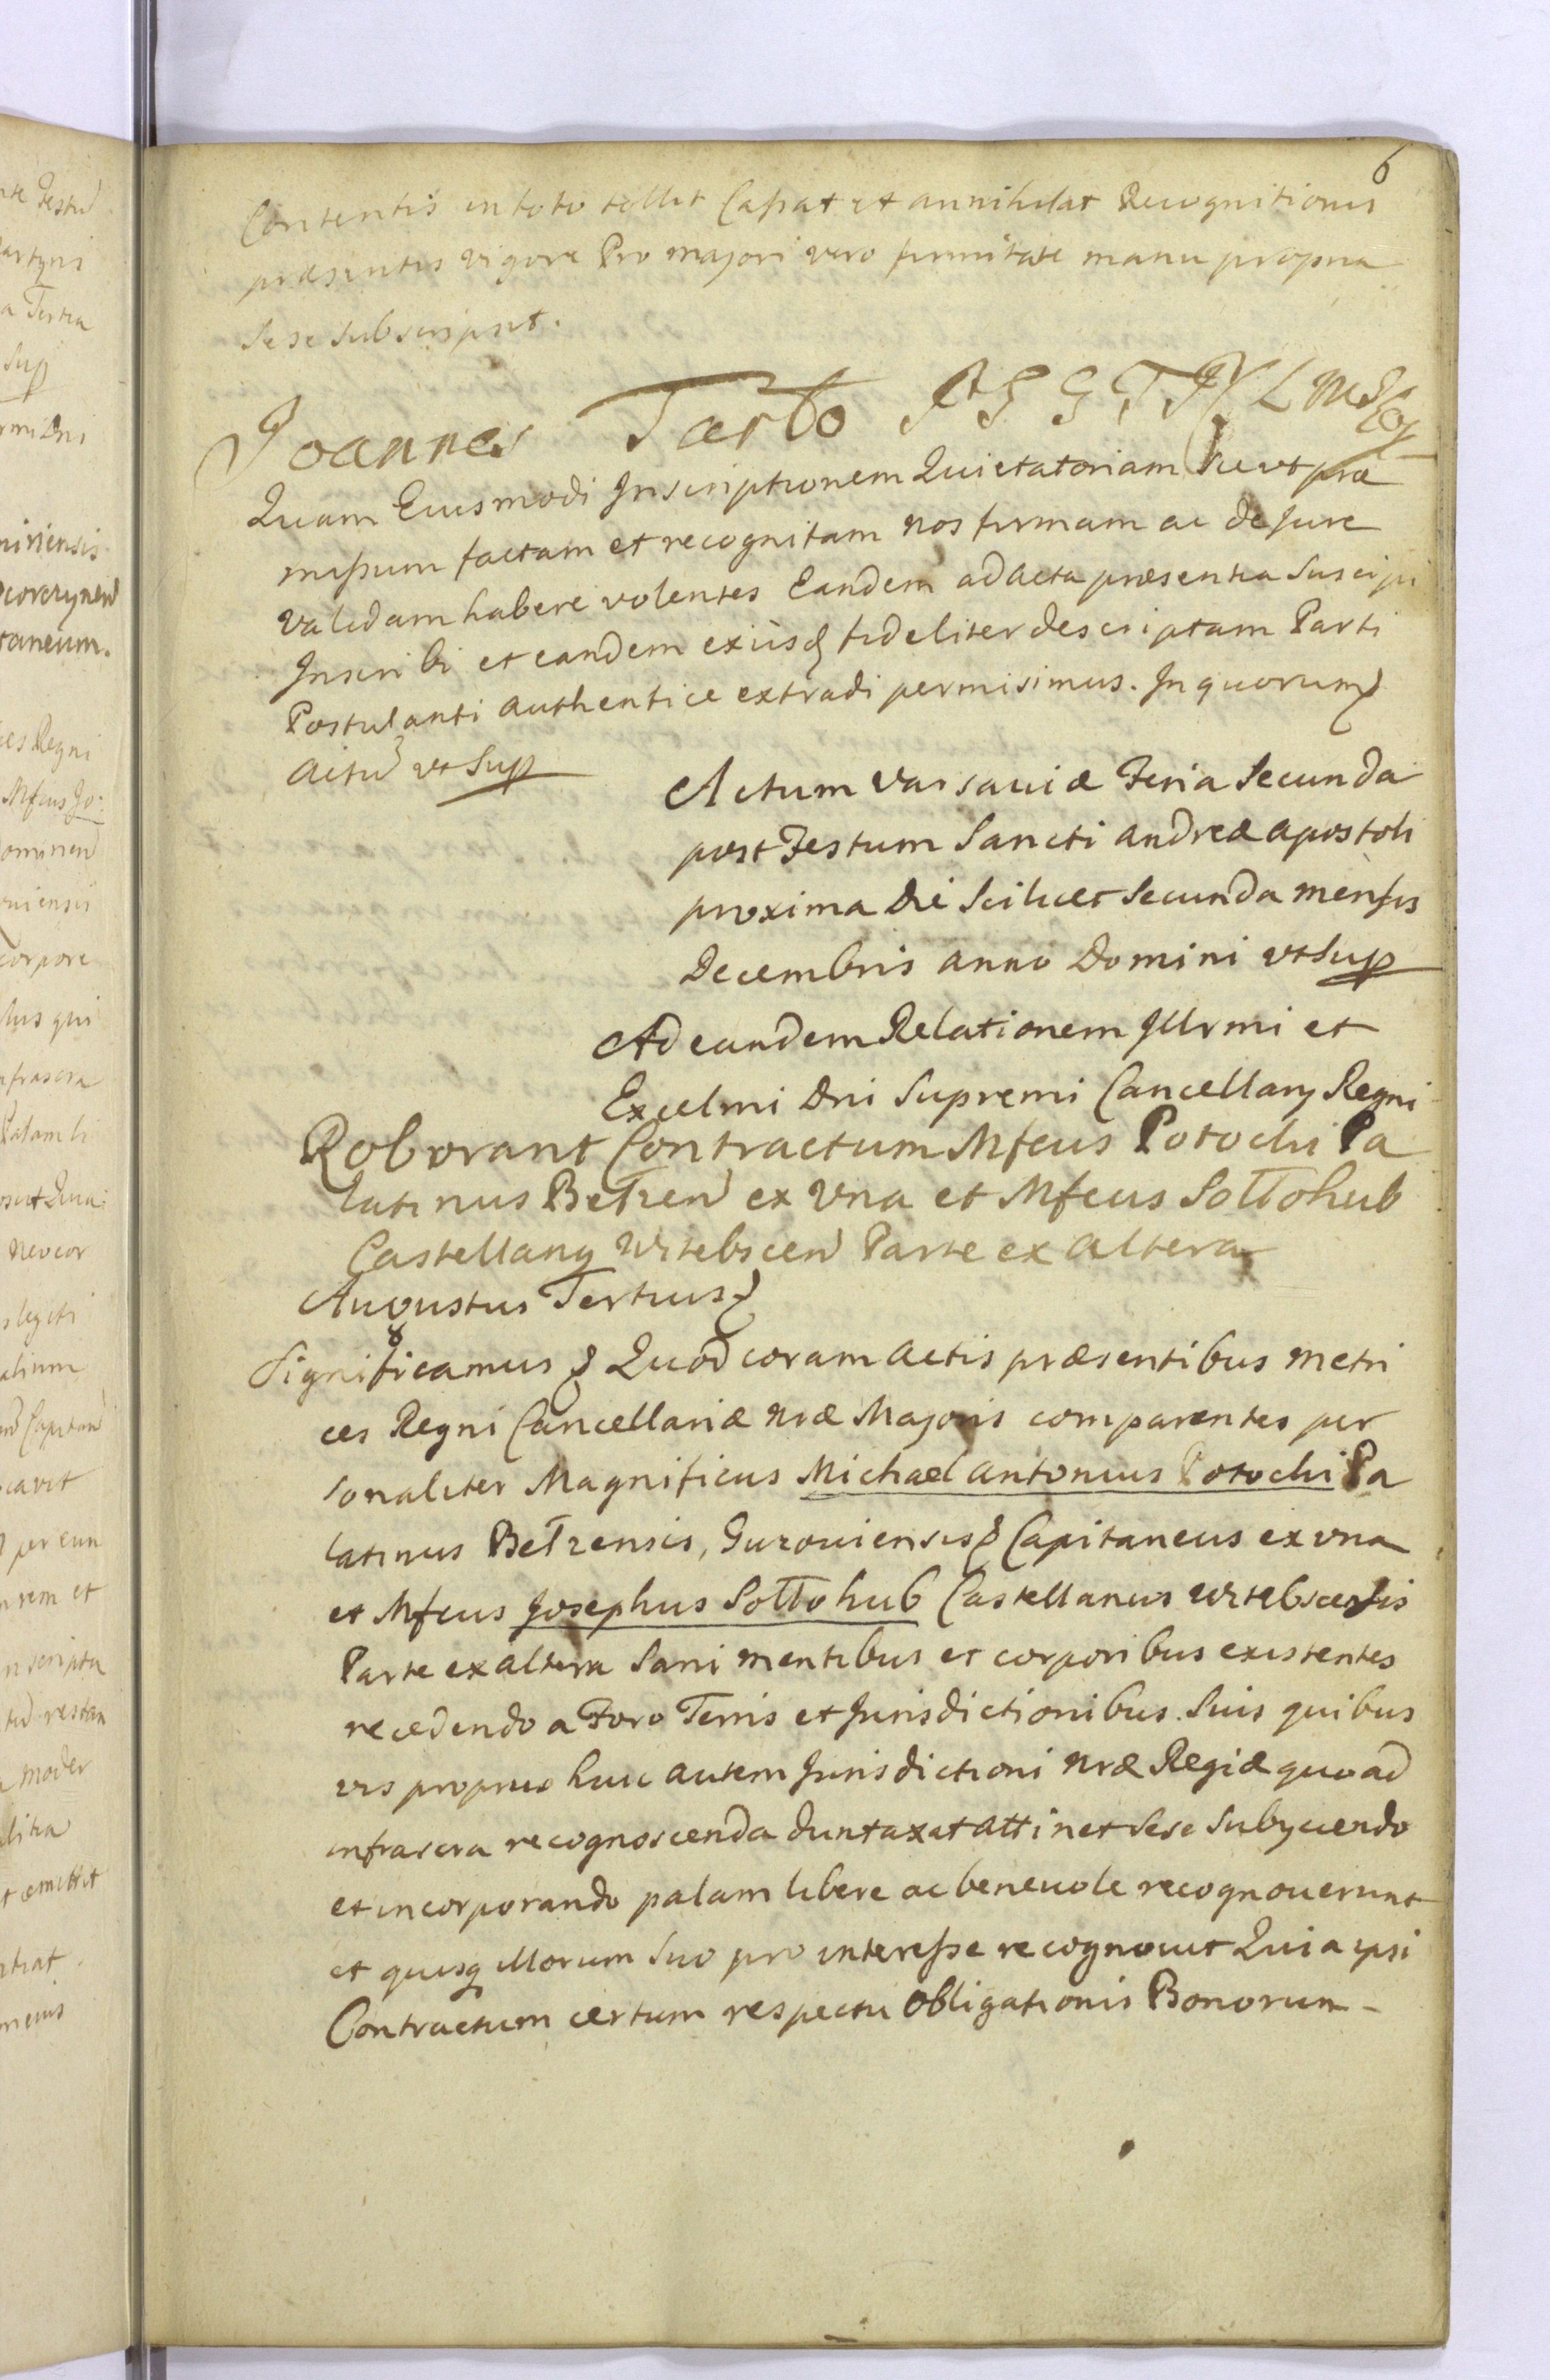 6
Contentis in toto tollit Cassat et annihilat Recognitionis
præsentis vigore Pro majori vero firmitate manu propria
Sese subscripsit.
Joannes Tarło
Quam Eiusmodi Inscriptionem Quietatoriam sicut præ
missum factam et recognitam nos firmam ac de Jure
validam habere volentes Eandem ad acta præsentia suscipi
Inscribi et eandem exiisq fideliter descriptam Parti
Postulanti authentice extradi permisimus. In quorum
Actu ut Sup
Actum Varsaviæ Feria Secunda
post Festum Sancti Andreæ Apostoli
proxima Die Scilicet Secunda mensis
Decembris anno Domini ut Sup
Ad eandem Relationem Illrmi et
Excelmi Dni Supremi Cancellary Regni
Roborant Contractum Mfcus Potocki Pa
latinus Bełzen ex Vna et Mfcus Sołłohub
Castellany Witebscen Parte ex altera
Augustus Tertius
Significamus Quod coram actis præsentibus metri
ces Regni Cancellariæ nræ Majoris comparentes per
sonaliter Magnificus Michael Antonius Potocki Pa
latinus Bełzensis, Gurowiensis Capitaneus ex vna
et Mfcus Josephus Sołłohub Castellanus Witebscensis
Parte ex altera Sani mentibus et corporibus existentes
recedendo a Foro Terris et Jurisdictionibus Suis quibus
vis proprus huic autem Jurisdictioni nræ Regiæ quoad
infrascra recognoscenda duntaxat attinet Sese Subyciendo
et incorporando palam libere ac benevole recognouerunt
et quisq illorum suo pro interesse recognouit Quia ipsi
Contractum certum respectu Obligationis Bonorum-